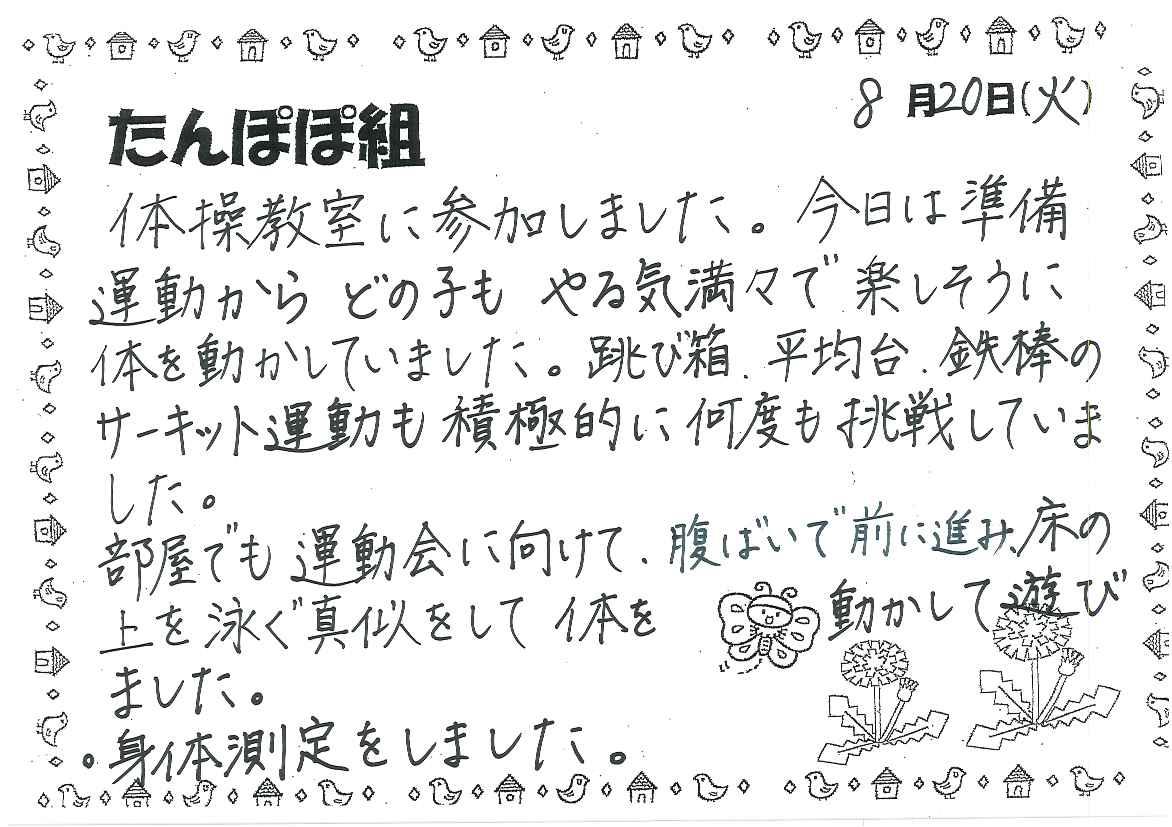 8月20日(火)
たんぽぽ組
体操教室に参加しました。今日は準備
運動からどの子もやる気満々で楽しそうに
体を動かしていました。跳び箱、平均台、鉄棒の
サーキット運動も積極的に何度も挑戦していま
した。
部屋でも運動会に向けて、腹ばいで前に進み、床の
上を泳ぐ真似をして体を動かして遊び
ました。
。身体測定をしました。